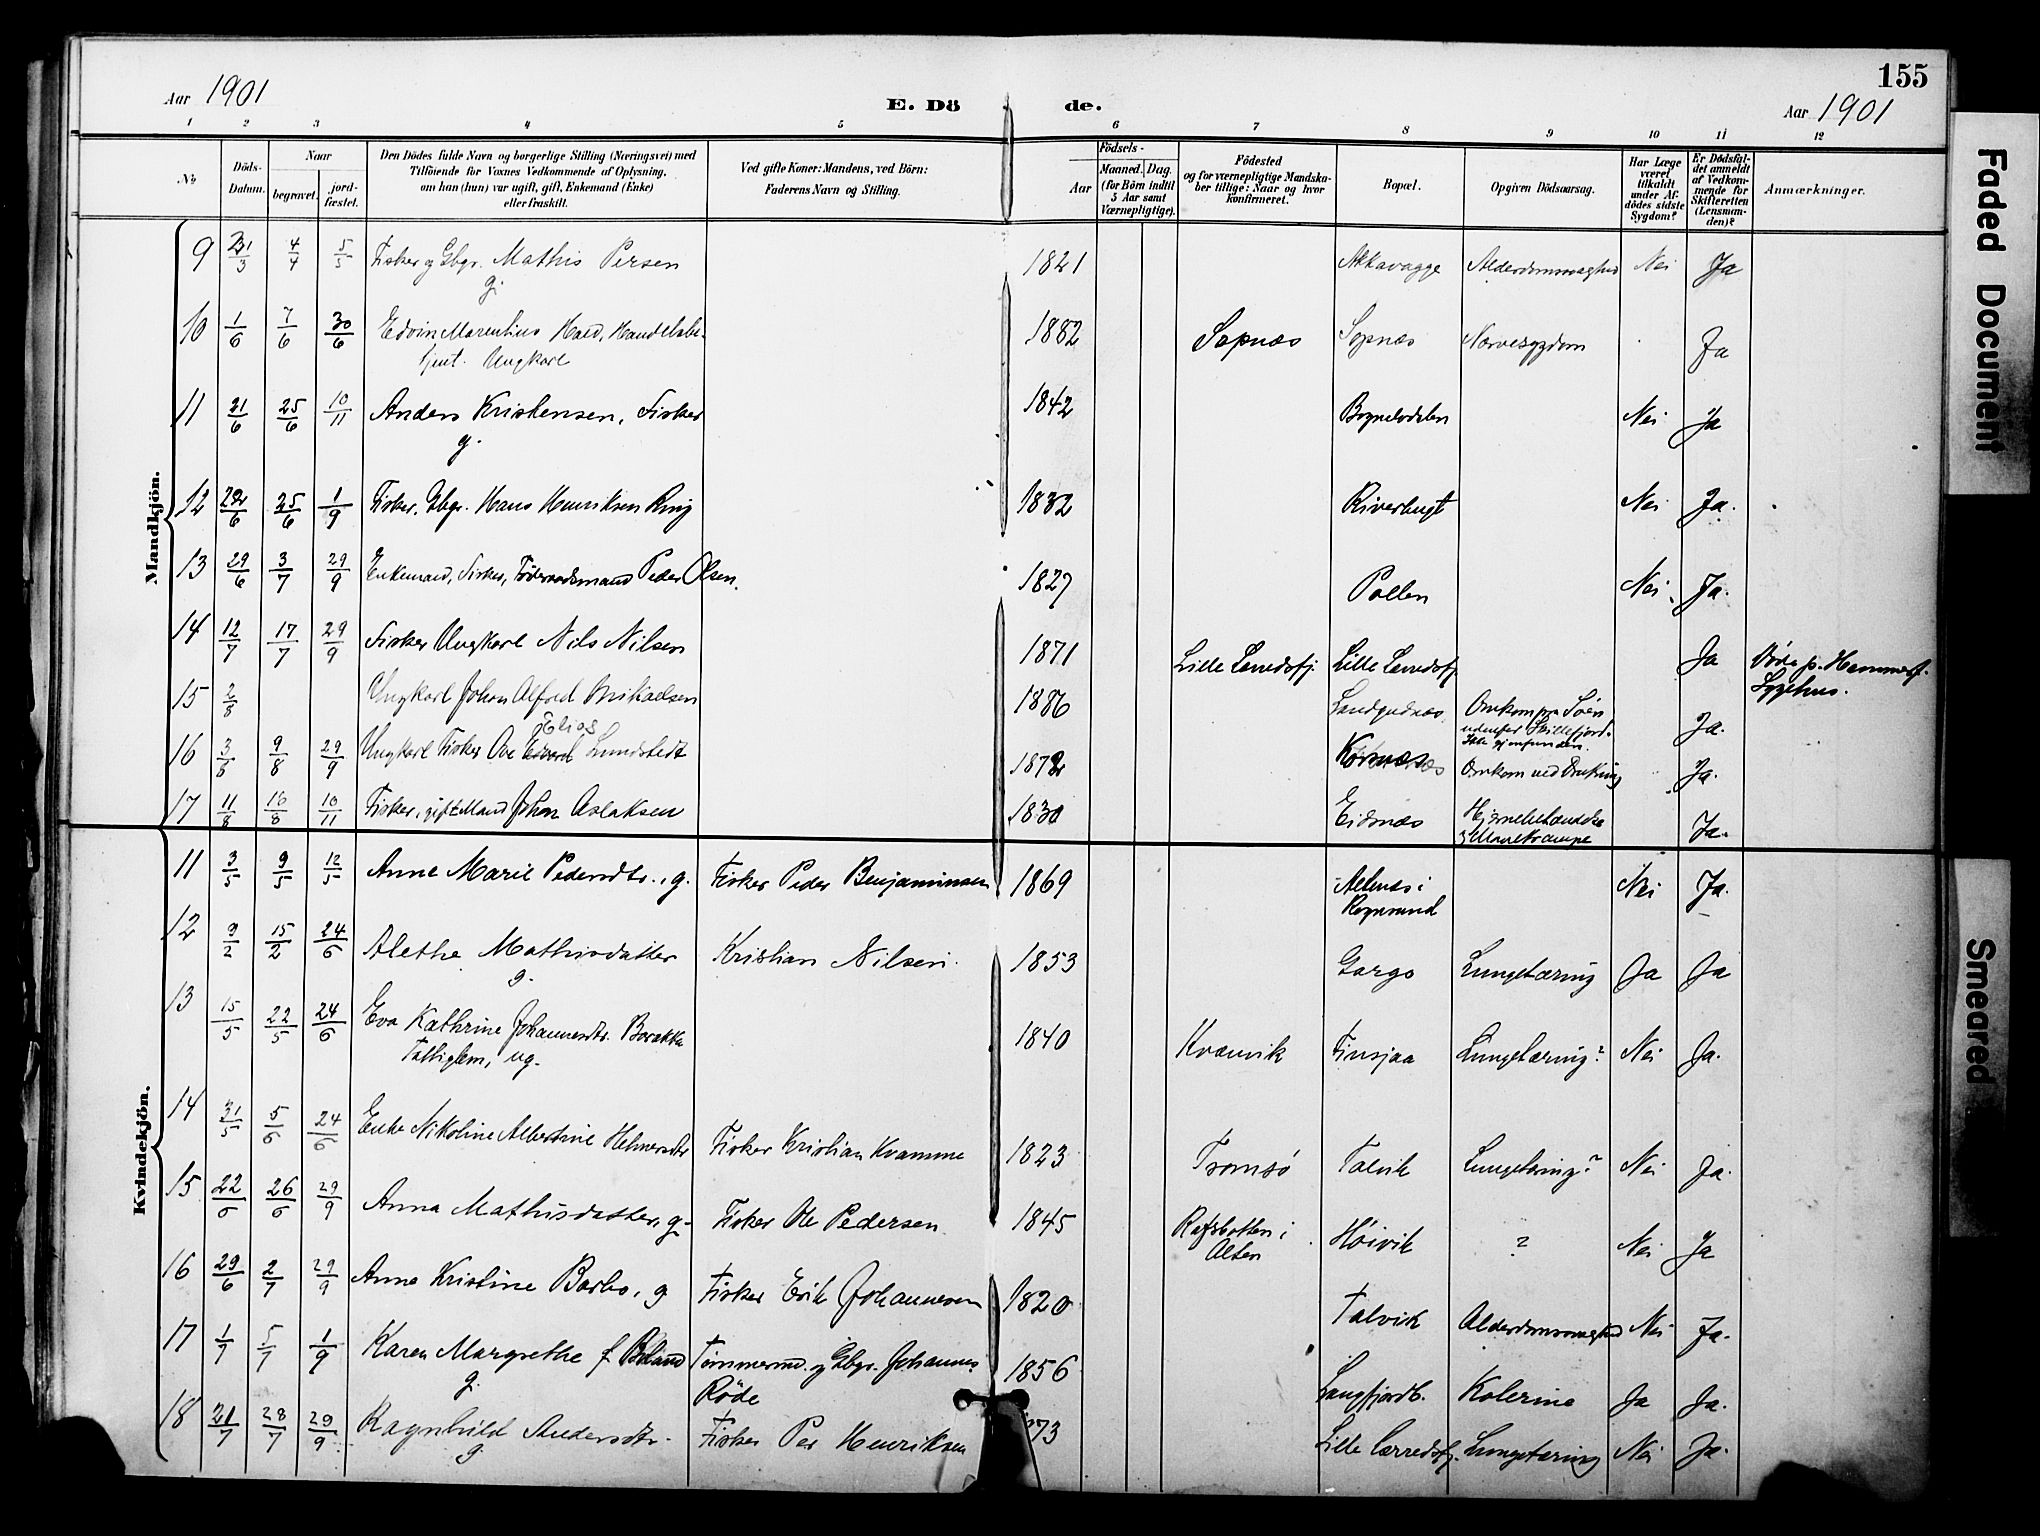 155
Aar 1901
E. Dö
de.
Aar 1901
1 2 3 4 5 6 7 8 9 10 11 12
No
Döds-
Datum.
Naar
begravet.
jord-
fæstet.
Den Dödes fulde Navn og borgerlige Stilling (Næringsvei) med
Tilföiende for Voxnes Vedkommende af Oplysning,
om han (hun) var ugift, gift, Enkemand (Enke)
eller fraskilt.
Ved gifte Koner: Mandens, ved Börn:
Faderens Navn og Stilling.
Födsels-
Aar
Maaned. Dag.
(for Börn indtil
5 Aar samt
Værnepligtige).
Födested
og for værnepligtige Mandska-
ber tillige: Naar og hvor
konfirmeret.
Bopæl.
Opgiven Dödsaarsag.
Har Læge
været
tilkaldt
under Af-
dödes sidste
Sygdom?
Er Dödsfal-
det anmeldt
af Vedkom-
mende for
Skifteretten
(Lensman-
den)?
Anmærkninger.
Mandkjön.
9 31/3 4/4 5/5 Fisker og Gbgr. Mathis Persen 1821 Akkavagge Alderdomssvaghed Nei Ja
g.
10 1/6 7/6 30/6 Edvin Marentius Hald, Handelsbe- 1882 Sopnæs Sopnæs Nervesygdom Ja
tjent. Ungkarl
11 21/6 25/6 10/11 Anders Kristensen, Fisker 1842 Bognelvdalen Nei Ja
g.
12 22/6 25/6 1/9 Fisker, Gbgr. Hans Henriksen Ring 1832 Riverbugt Nei Ja.
13 29/6 3/7 29/9 Enkemand, Fisker, Föderaadsmand Peder Olsen. 1827 Pollen Nei Ja.
14 12/7 17/7 29/9 Fisker Ungkarl Nils Nilsen 1871 Lille Lerredsfj. Lille Lerredsfj. Ja Döde p. Hammerf.
Sygehus.
15 2/8 Ungkarl Johan Alfred Mikaelsen 1886 Omkom paa Söen
udenfor Skillefjord.
Ikke gjenfunden. Ja.
Elias
16 3/8 9/8 29/9 Ungkarl Fisker Ove Edvard Lundstedt 1872 Korsnæs Omkom ved Drukning Ja.
17 11/8 16/8 10/11 Fisker, gift Mand Johan Aslaksen 1830 Eidsnæs Hjernebetændelse
og Mavekrampe Ja.
Kvindekjön.
11 3/5 9/5 12/5 Anne Marie Pedersdtr., g. Fisker Peder Benjaminsen 1869 Altnes i
Rognsund Nei Ja.
12 9/2 15/2 24/6 Alethe Mathisdatter Kristian Nilsen. 1853 Gargo Lungetæring Ja Ja
g.
13 15/5 22/5 24/6 Eva Kathrine Johannesdtr. Barakka 1840 Kvænvik Tinsjaa Lungetæring? Nei Ja.
Fattiglem, ug.
14 31/5 5/6 24/6 Enke Nikoline Albertine Helmersdtr Fisker Kristian Kvamme 1823 Tromsö Talvik Lungetæring? Nei Ja.
15 22/6 26/6 29/9 Anna Mathisdatter, g. Fisker Ole Pedersen 1845 Rafsbotten i
Alten Höivik ? Nei Ja
16 29/6 2/7 29/9 Anne Kristine Barbo, g Fisker Erik Johannesen 1820 Talvik Alderdomssvaghed Nei Ja.
17 1/7 5/7 1/9 Karen Margrethe f. Tömmermd. og Gbgr. Johannes 1856 Langfjordb. Kolerine Ja Ja.
g. Röde
18 21/7 28/7 29/9 Ragnhild Andersdtr. Fisker Per Henriksen 73 Lille Lerredsfj. Lungetæring Nei Ja.
g.
Faded Document
Smeared